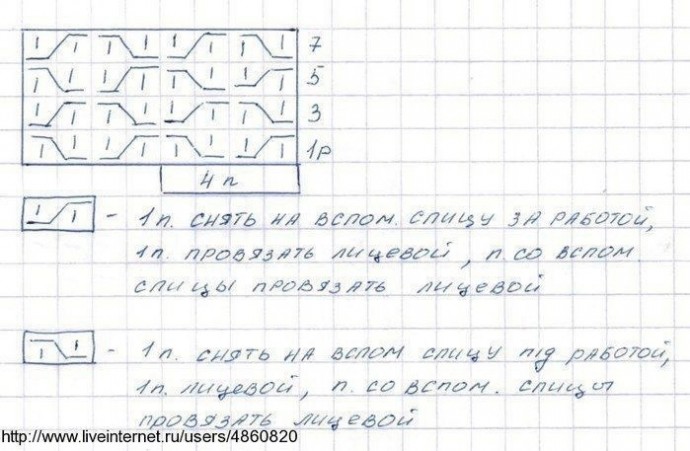 7
5
3
1р
4 п
- 1п. снять на вспом. спицу за работой,
1п. провязать лицевой, п. со вспом.
спицы провязать лицевой
- 1п. снять на вспом спицу під работой,
1п. лицевой, п. со вспом. спицы
провязать лицевой
http://www.liveinternet.ru/users/4860820